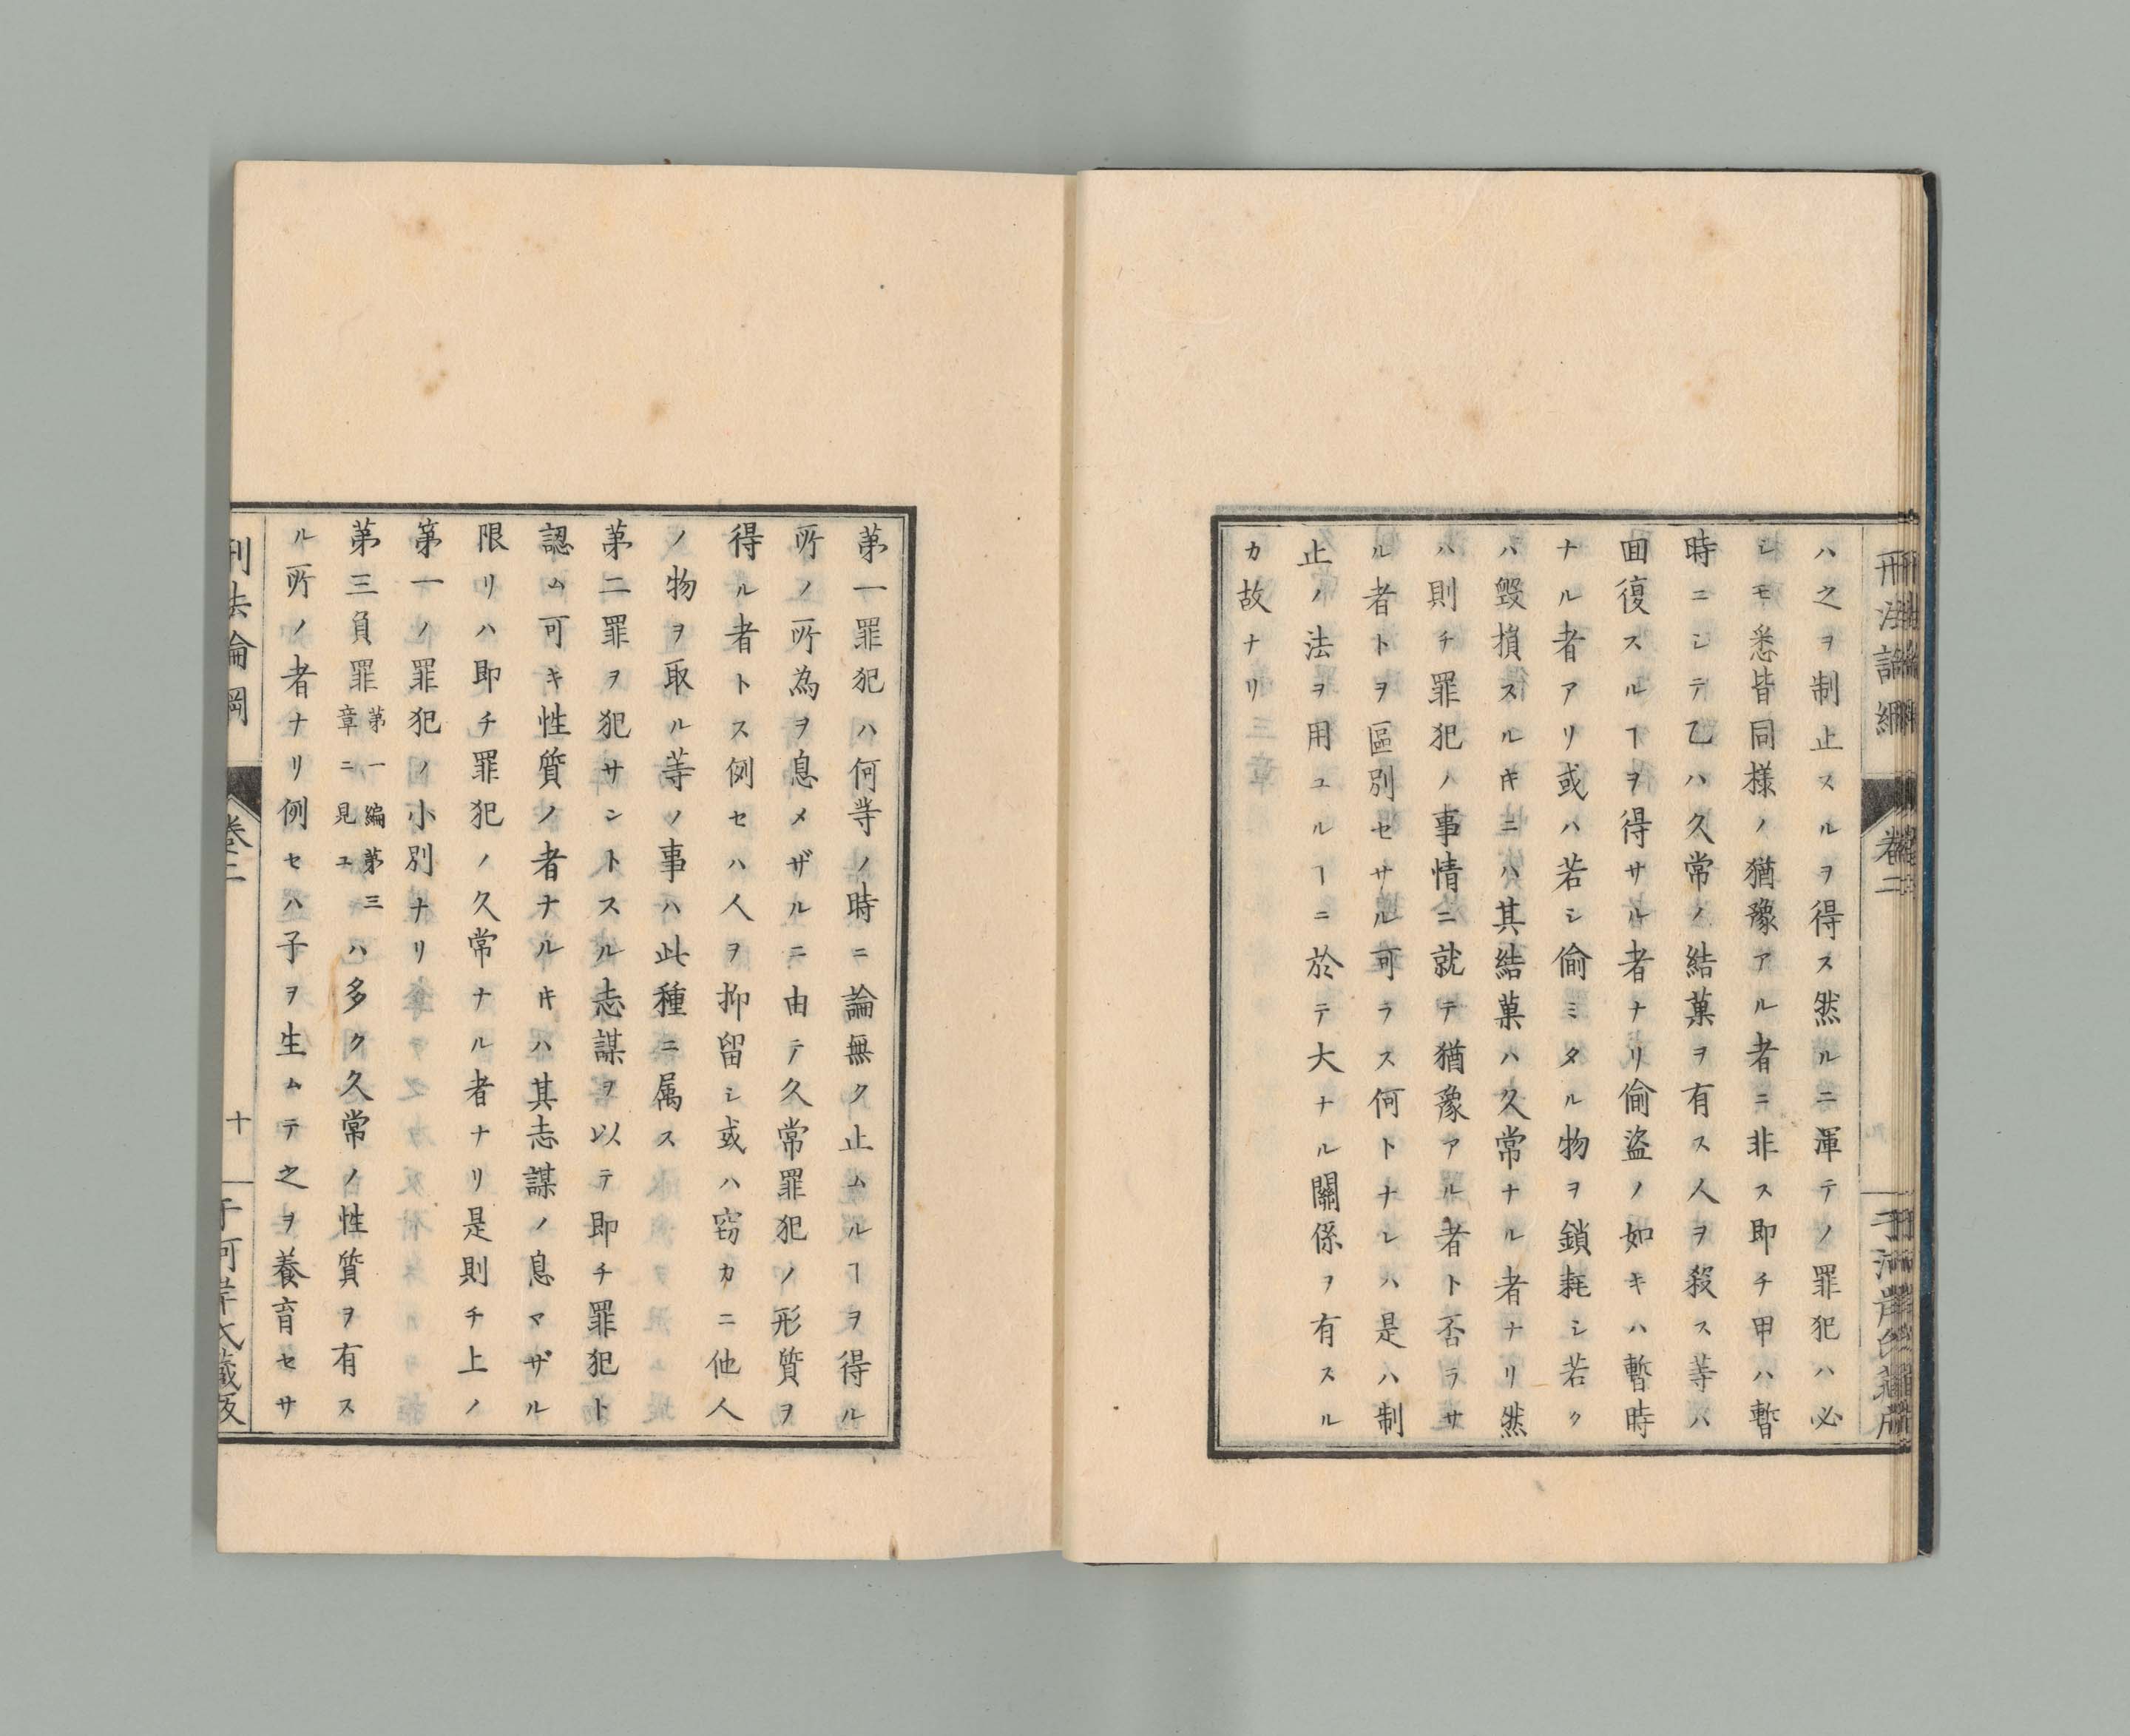 ハ之ヲ制止スルヲ得ス然ルニ渾テノ罪犯ハ必
シモ悉皆同様ノ猶豫アル者ニ非ス即チ甲ハ暫
時ニシテ乙ハ久常ノ結菓ヲ有ス人ヲ殺ス等ハ
囬復スルヿヲ得サル者ナリ偷盗ノ如キハ暫時
ナル者アリ或ハ若シ偷ミタル物ヲ鎖耗シ若ク
ハ毀損スルキニハ其結菓ハ久常ナル者ナリ然
ハ則チ罪犯ノ事情ニ就テ猶豫アル者ト否ラサ
ル者トヲ區別セサル可ラス何トナレハ是ハ制
止ノ法ヲ用ユルヿニ於テ大ナル關係ヲ有スル
カ故ナリ
第一罪犯ハ何等ノ時ニ論無ク止ムルヿヲ得ル
所ノ所為ヲ息メザルニ由テ久常罪犯ノ形質ヲ
得ル者トス例セハ人ヲ抑留シ或ハ窃カニ他人
ノ物ヲ取ル等ノ事ハ此種ニ属ス
第二罪ヲ犯サントスル志謀ヲ以テ即チ罪犯ト
認ム可キ性質ノ者ナルキハ其志謀ノ息マザル
限リハ即チ罪犯ノ久常ナル者ナリ是則チ上ノ
第一ノ罪犯ノ小別ナリ
第三負罪第一編第三章ニ見ユハ多ク久常ノ性質ヲ有ス
ル所ノ者ナリ例セハ子ヲ生ムテ之ヲ養育セサ
刑法論綱
卷二
十